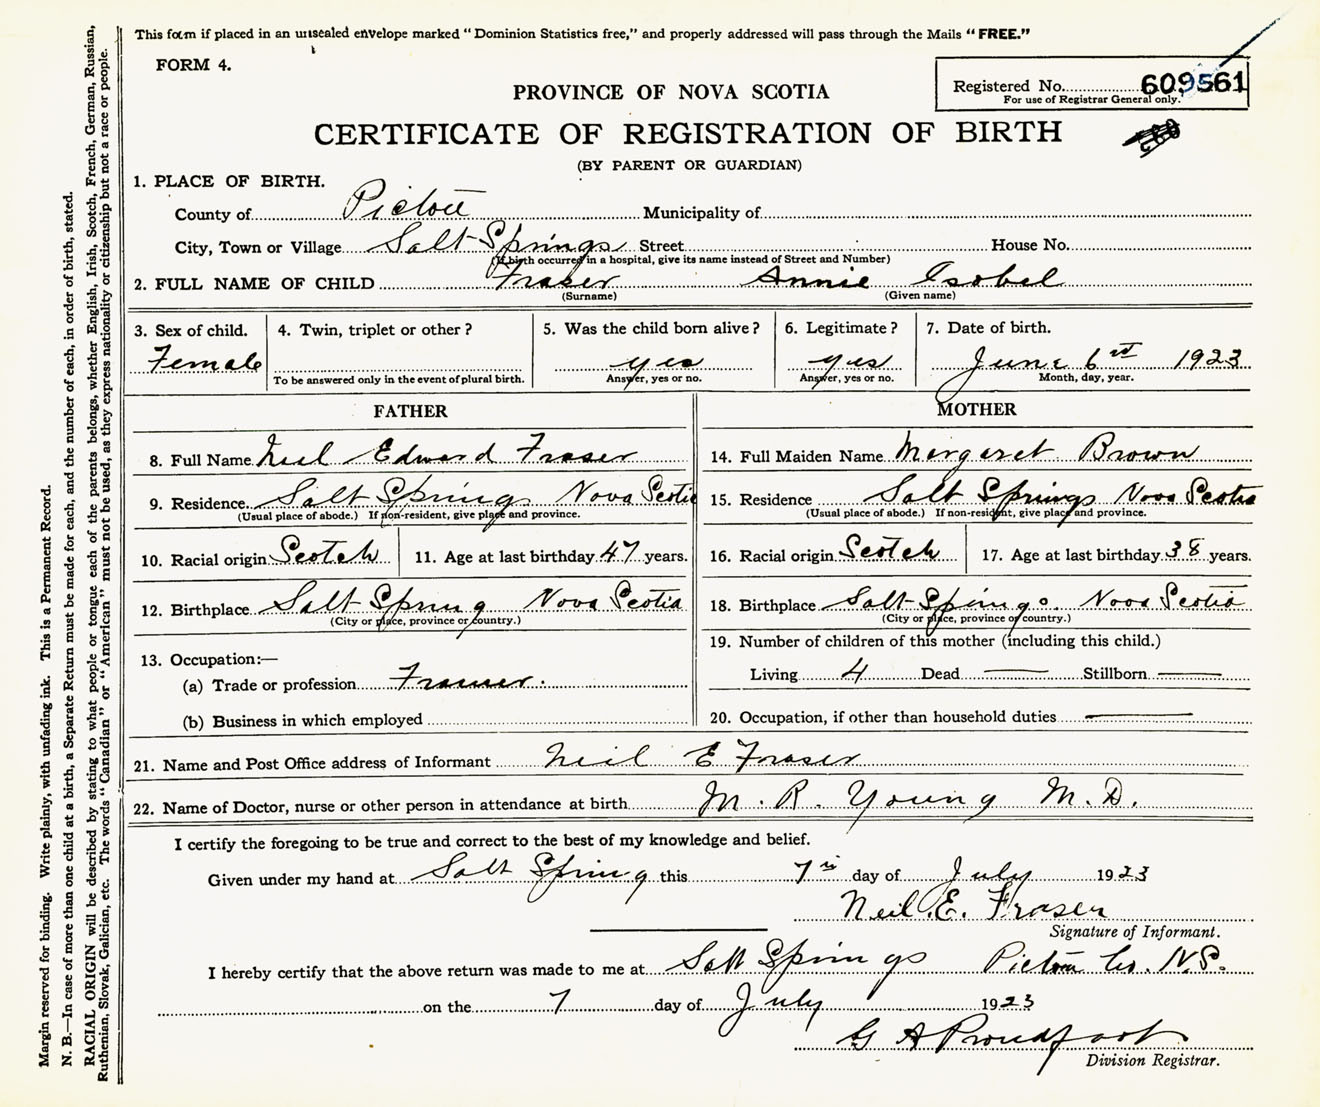 This form if placed in an unsealed envelope marked "Dominion Statistics free," and properly addressed will pass through the Mails "FREE."
FORM 4.
Registered No. 609561
For use of Registrar General only.
PROVINCE OF NOVA SCOTIA
CERTIFICATE OF REGISTRATION OF BIRTH
(BY PARENT OR GUARDIAN)
1. PLACE OF BIRTH.
County of Pictou Municipality of
City, Town or Village Salt Springs Street House No.
(If birth occurred in a hospital, give its name instead of Street and Number)
2. FULL NAME OF CHILD Fraser Annie Isobel
(Surname) (Given name)
3. Sex of child. 4. Twin, triplet or other? 5. Was the child born alive? 6. Legitimate? 7. Date of birth.
Female yes yes June 6rd 1923
To be answered only in the event of plural birth. Answer, yes or no. Answer, yes or no. Month, day, year.
FATHER
8. Full Name Neil Edward Fraser
9. Residence. Salt Springs Nova Scotia
(Usual place of abode.) If non-resident, give place and province.
10. Racial origin Scotch 11. Age at last birthday 47 years.
12. Birthplace Salt Spring Nova Scotia
(City or place, province or country.)
13. Occupation:—
(a) Trade or profession Framer.
(b) Business in which employed
MOTHER
14. Full Maiden Name Margaret Brown
15. Residence Salt Springs Nova Scotia
(Usual place of abode.) If non-resident, give place and province.
16. Racial origin Scotch 17. Age at last birthday 38 years.
18. Birthplace Salt Springs. Nova Scotia
(City or place, province or country.)
19. Number of children of this mother (including this child.)
Living 4 Dead — Stillborn —
20. Occupation, if other than household duties —
21. Name and Post Office address of Informant Neil E Fraser
22. Name of Doctor, nurse or other person in attendance at birth M. R. Young M.D.
I certify the foregoing to be true and correct to the best of my knowledge and belief.
Given under my hand at Salt Spring this 7th day of July 1923
Neil E. Fraser
Signature of Informant.
I hereby certify that the above return was made to me at Salt Springs Pictou Co. N.S.
on the 7 day of July 1923
G A Proudfoot
Division Registrar.
Margin reserved for binding. Write plainly, with unfading ink. This is a Permanent Record.
N. B.—In case of more than one child at a birth, a Separate Return must be made for each, and the number of each, in order of birth, stated.
RACIAL ORIGIN will be described by stating to what people or tongue each of the parents belongs, whether English, Irish, Scotch, French, German, Russian,
Ruthenian, Slovak, Galician, etc. The words "Canadian" or "American" must not be used, as they express nationality or citizenship but not a race or people.